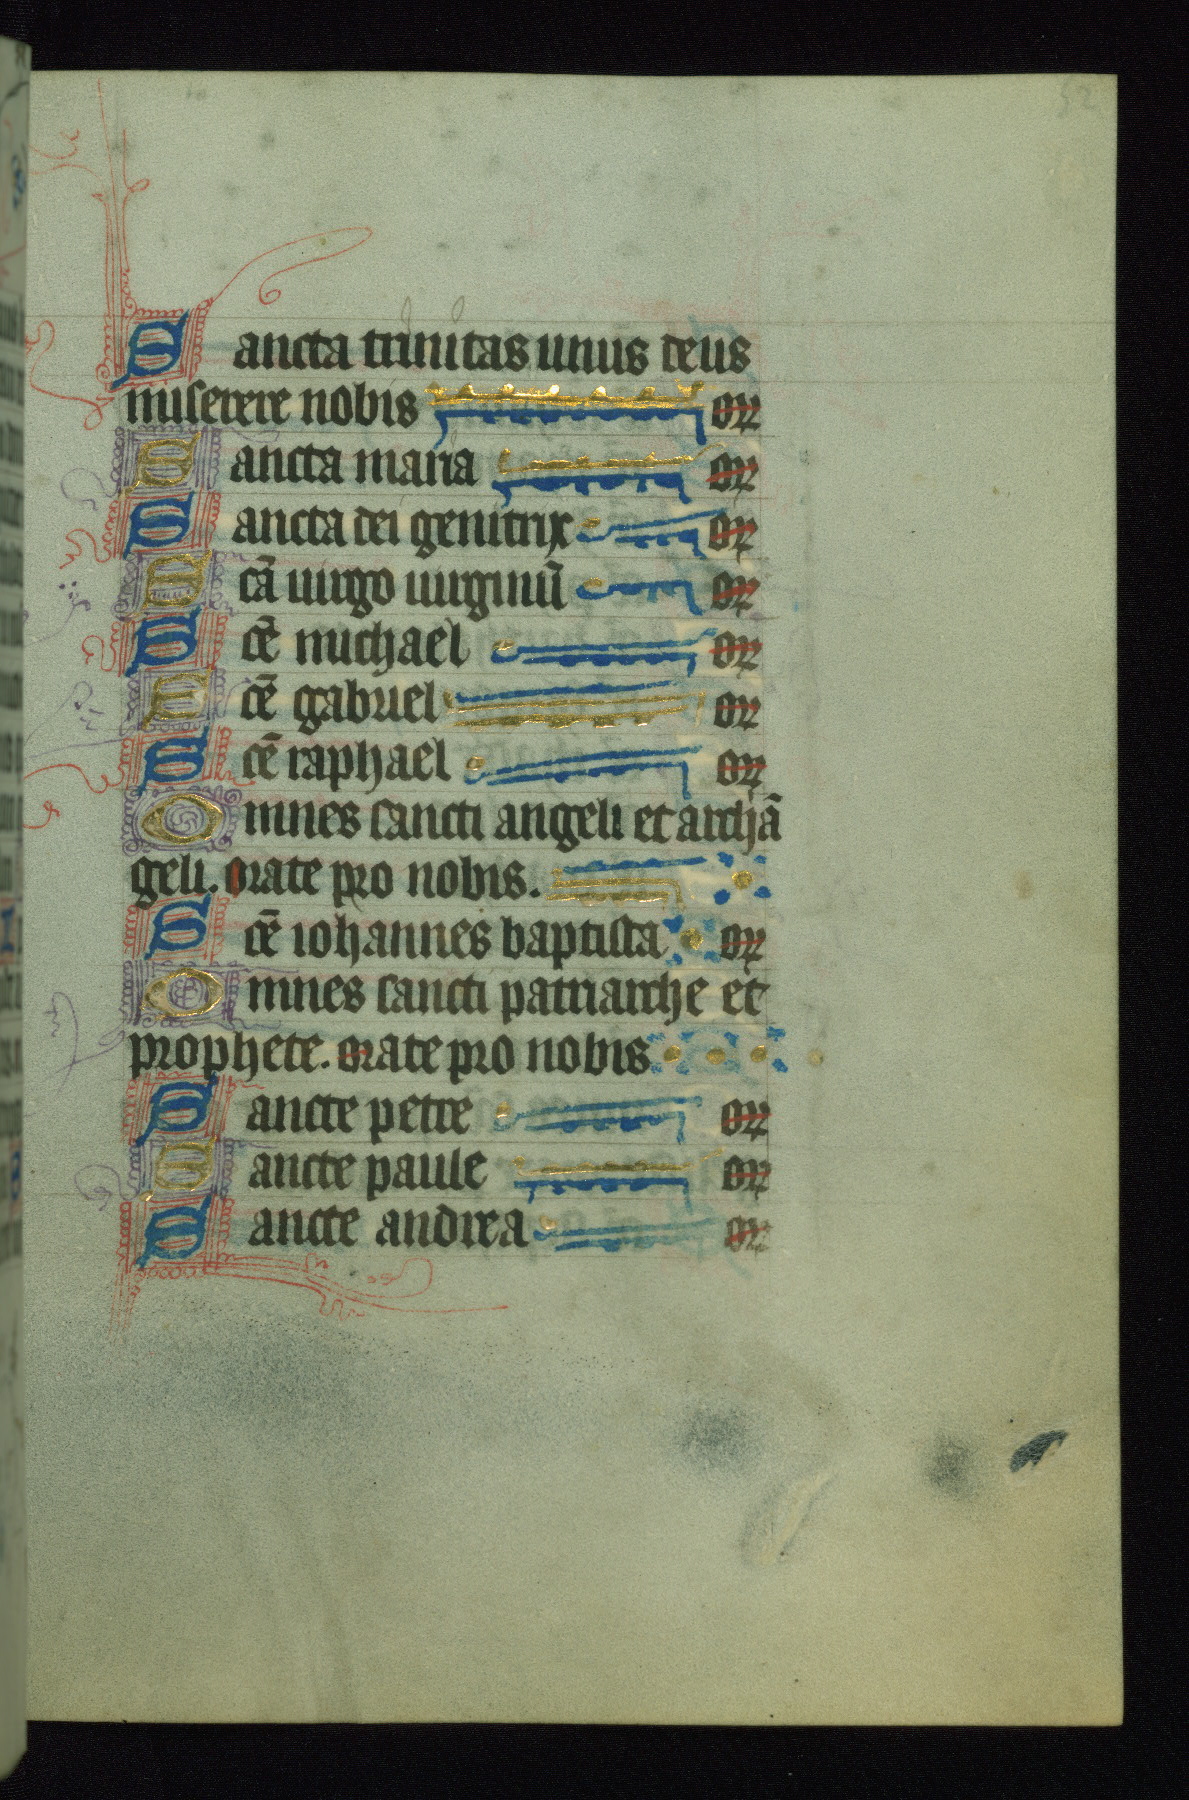 Sancta trinitas unus deus
miserere nobis or
Sancta maria or
Sancta dei genitrix or
Scā uirgo uirginū or
Scē michael or
Scē gabriel or
Scē raphael or
Omnes sancti angeli et archā
geli. orate pro nobis.
Scē iohannes baptista or
Omnes sancti patriarche et
prophete. orate pro nobis
Sancte petre or
Sancte paule or
Sancte andrea or